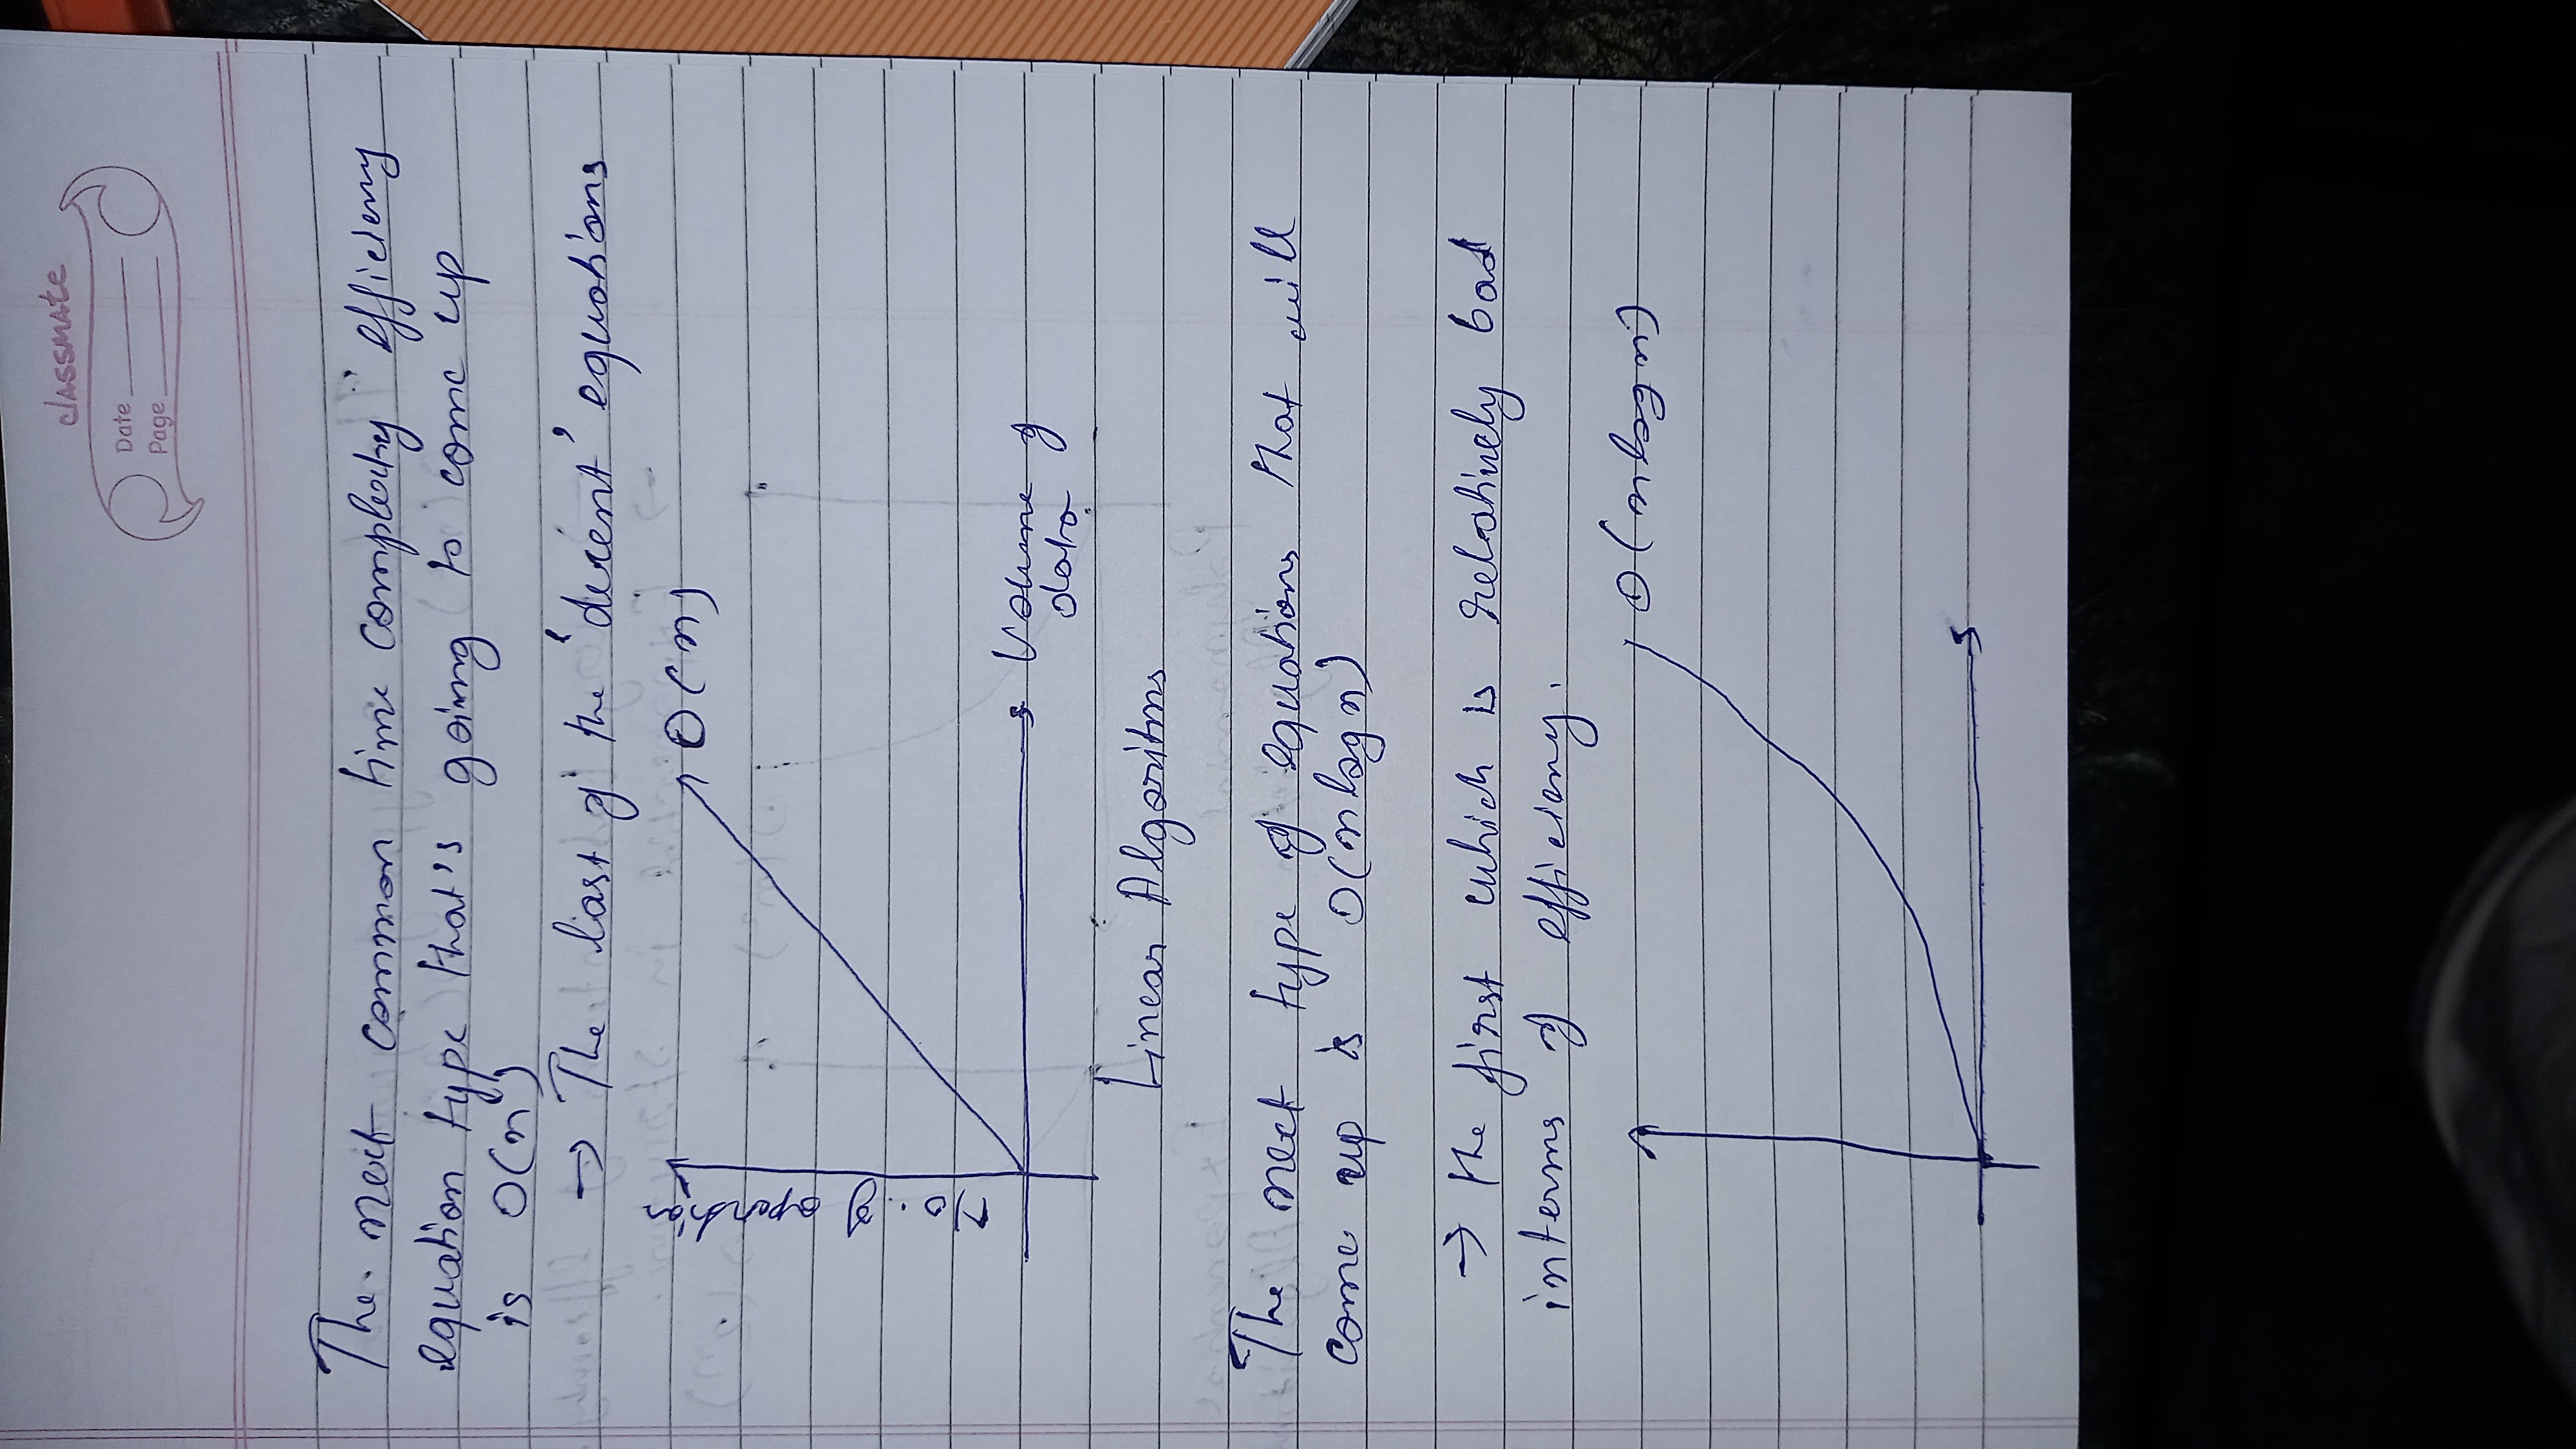 classmate
Date
Page
The next common time complexity efficiency
equation type that's going to come up
is O(n)
→ The last of the 'decent' equations
O(n)
No. of operation
Volume of
data
Linear Algoritms
The next type of equations that will
come up is O(nlogn)
→ the first which is relatively bad
interms of efficiency.
O(nlogn)